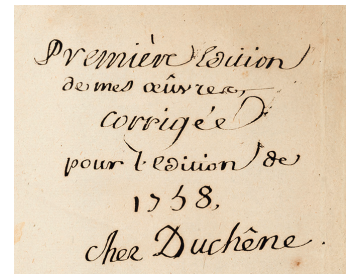 Première Edition
de mes œûvres,
corrigée
pour l'edition de
1758,
chez Duchêne.